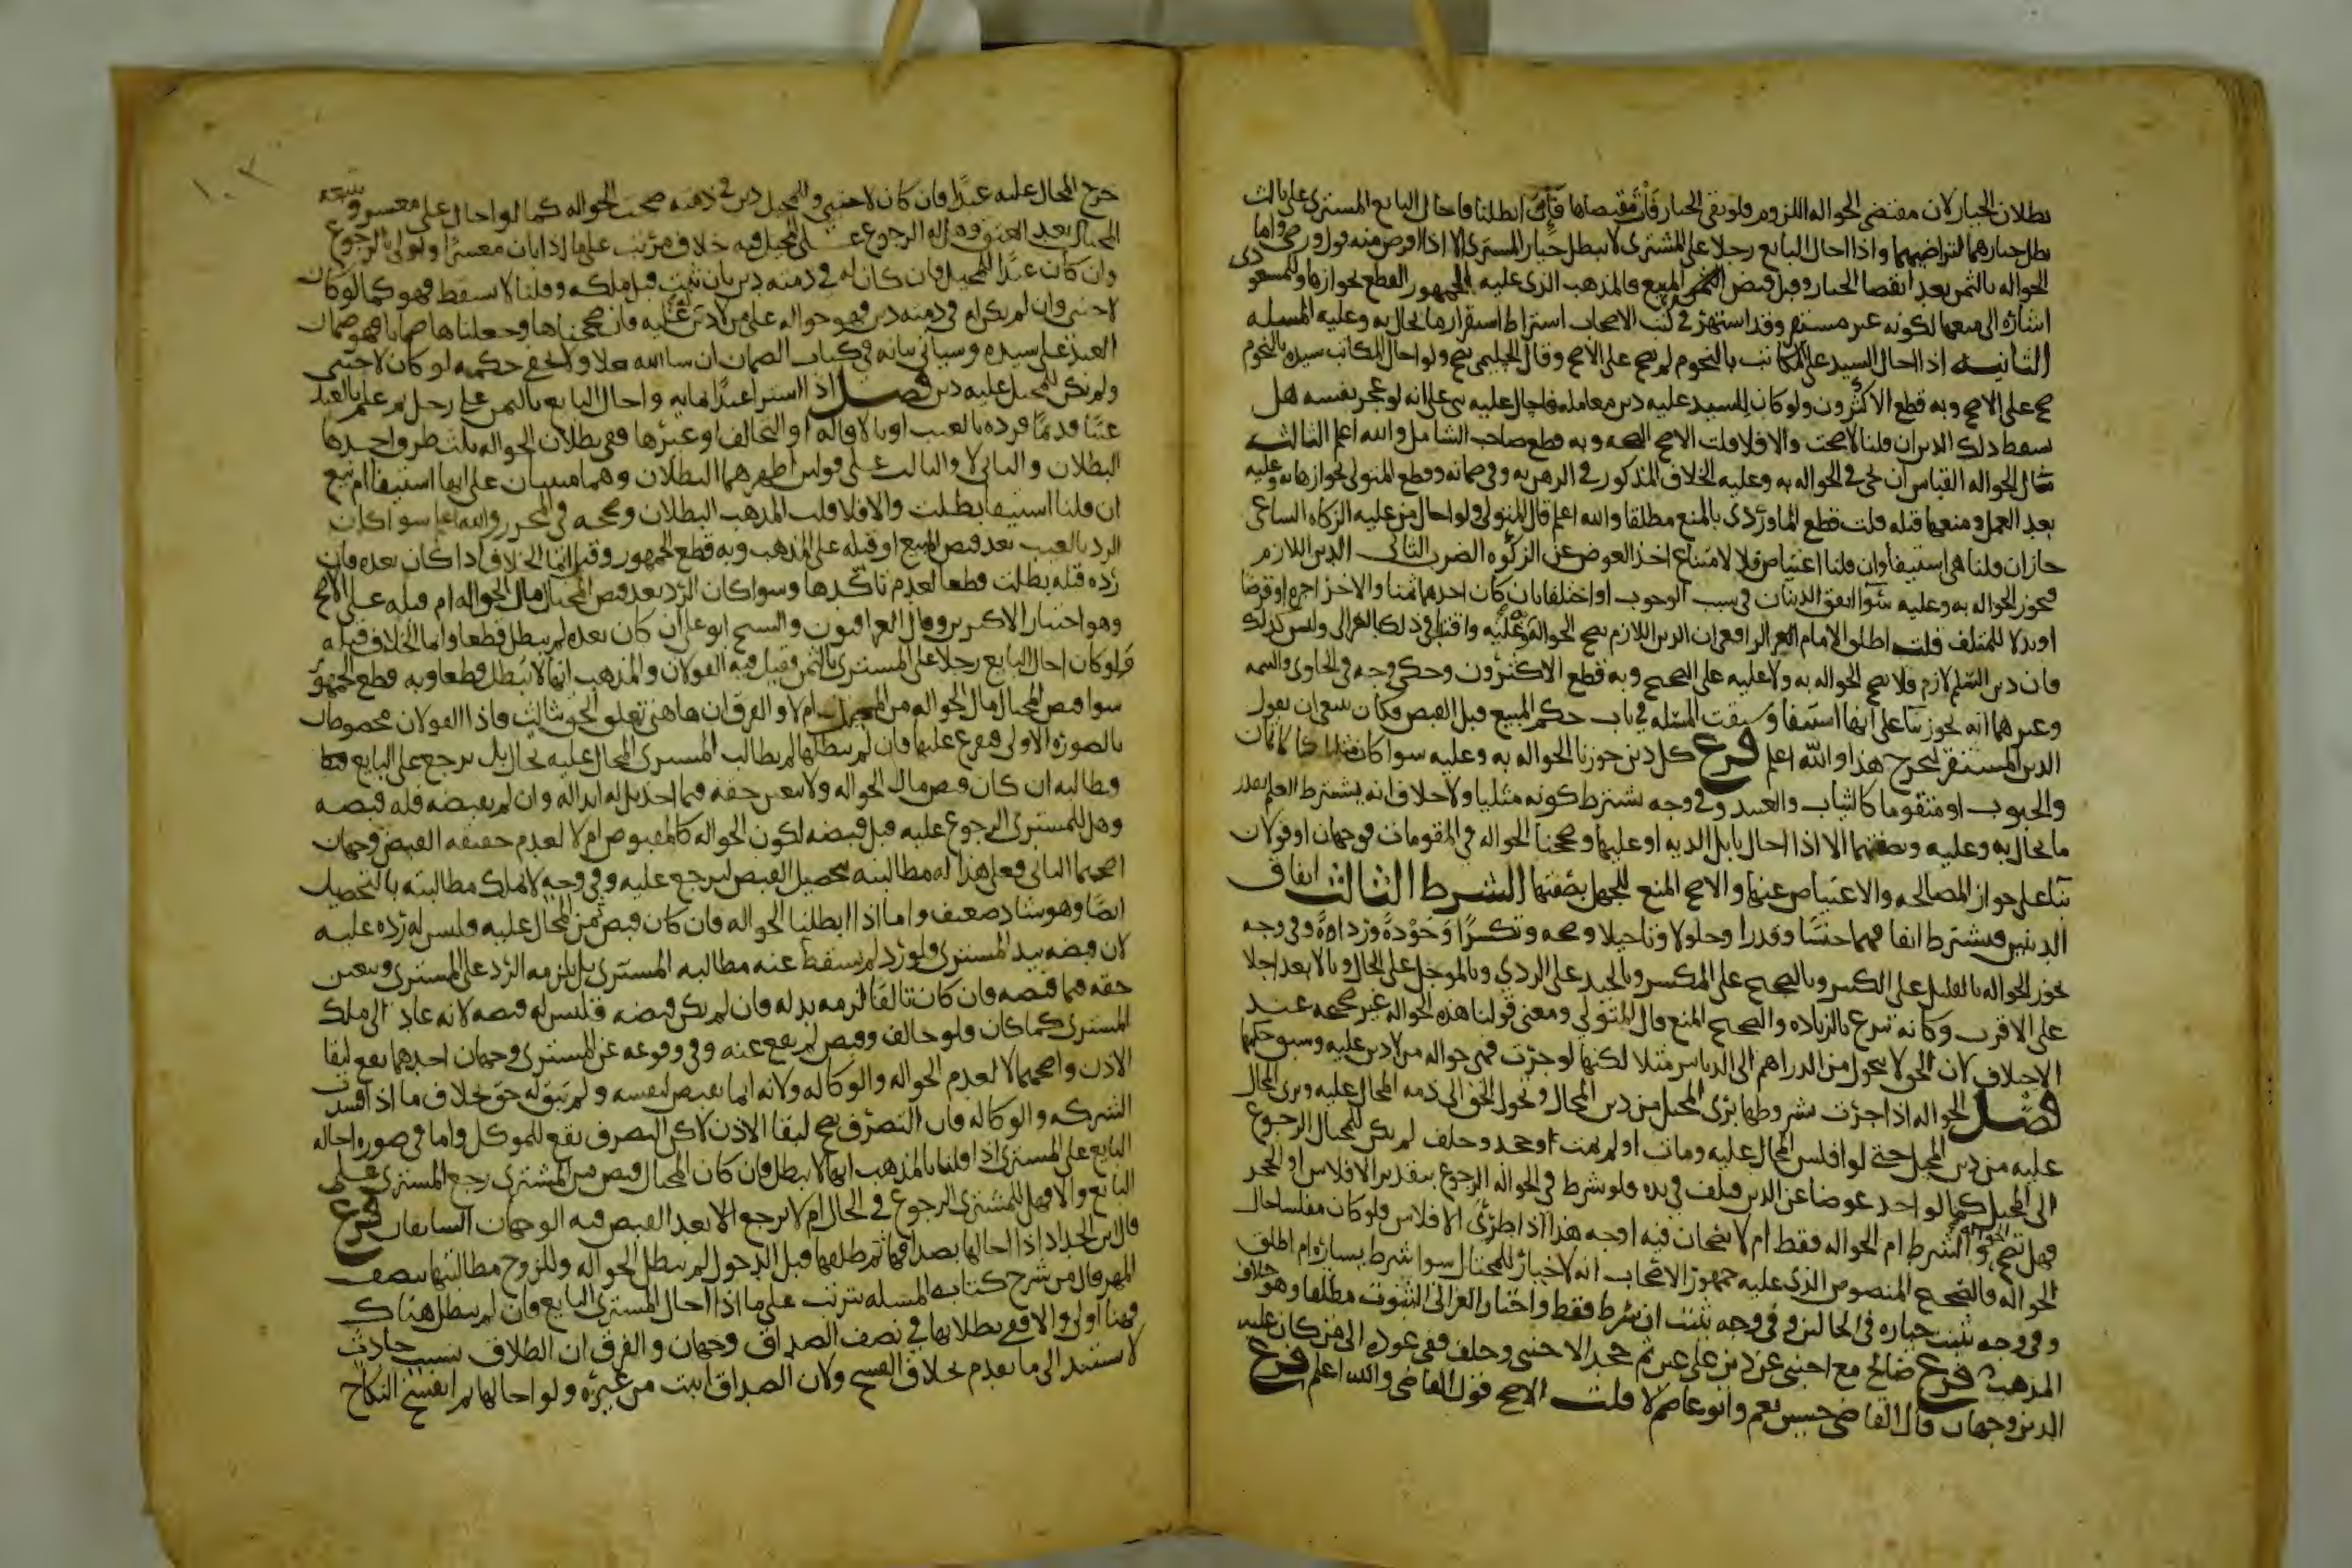 بطلان الخيار لان مقتضى الحواله اللزوم ولو بقي الخيار فات مقتضاها فإن ابطلنا فاحال البايع المشتري على ثالث
بطل خيارهما لتراضيهما واذا احال البايع رجلا على المشتري لا يبطل خيار المشتري الا اذا فرض منه قول ورضي واما
الحواله بالثمن بعد انقضا الخيار وقبل قبض المبيع فالمذهب الذي عليه الجمهور القطع بجوازها وللمسعودي
اشاره الى منعها لكونه غير مستقر وقد اشتهر في كتب الاصحاب اشتراط استقرار ما يحال به وعليه المسله
الثانيه اذا احال السيد على المكاتب بالنجوم لم يصح على الاصح وقال الحليمي يصح ولو احال المكاتب سيده بالنجوم
صح على الاصح وبه قطع الاكثرون ولو كان للسيد عليه دين معامله فاحال عليه بنى على انه لو عجز نفسه هل
سقط ذلك الدين ان قلنا لا صحت والا فلا قلت الاصح الصحه وبه قطع صاحب الشامل والله اعلم الثالثه
مال الجعاله القياس ان يجي في الحواله به وعليه الخلاف المذكور في الرهن به وفي ضمانه وقطع المتولي بجوازها به وعليه
بعد العمل ومنعها قبله قلت قطع الماوردي بالمنع مطلقا والله اعلم قال المتولي ولو احال من عليه الزكاه الساعي
جاز ان قلنا هي استيفا وان قلنا اعتياض فلا لامتناع اخذ العوض عن الزكوه الضرب الثاني الدين اللازم
فتجوز الحواله به وعليه سوا اتفق الدينان في سبب الوجوب او اختلفا بان كان احدهما ثمنا والاخر اجره او قرضا
او بدلا لمتلف قلت اطلق الامام الرافعي ان الدين اللازم تصح الحواله به وعليه واقتدى في ذلك بالغزالي وليس كذلك
فان دين السلم لازم ولا تصح الحواله به ولا عليه على الصحيح وبه قطع الاكثرون وحكي وجه في الحاوي والتتمه
وغيرهما انه يجوز بنا على انها استيفا وسبقت المسله في باب حكم المبيع قبل القبض فكان ينبغي ان يقول
الدين المستقر ليخرج هذا والله اعلم فرع كل دين جوزنا الحواله به وعليه سوا كان مثليا كالاثمان
والحبوب او متقوما كالثياب والعبيد وفي وجه يشترط كونه مثليا ولا خلاف انه يشترط العلم بقدر
ما يحال به وعليه وبصفتهما الا اذا احال بابل الديه او عليها وصححنا الحواله في المتقومات فوجهان او قولان
بنا على جواز المصالحه والاعتياض عنها والاصح المنع للجهل بصفتها الشرط الثالث اتفاق
الدينين فيشترط اتفاقهما جنسا وقدرا وحلولا وتاجيلا وصحه وتكسرا وجودة ورداءة وفي وجه
تجوز الحواله بالقليل على الكثير وبالصحيح على المكسر وبالجيد على الردي وبالموجل على الحال وبالابعد اجلا
على الاقرب وكانه تبرع بالزياده والصحيح المنع قال المتولي ومعنى قولنا هذه الحواله غير صحيحه عند
الاختلاف لان الحق لا يتحول من الدراهم الى الدنانير مثلا لكنها لو جرت فهي حواله من لا دين عليه وسبق حكمها
فصل الحواله اذا جرت بشروطها برئ المحيل من دين المحتال وتحول الحق الى ذمه المحال عليه وبرئ المحال
عليه من دين المحيل حتى لو افلس المحال عليه ومات او لم يمت او جحد وحلف لم يكن للمحتال الرجوع
الى المحيل كما لو اخذ عوضا عن الدين وتلف في يده فلو شرط في الحواله الرجوع بتقدير الافلاس او الجحد
فهل تصح الحواله والشرط ام الحواله فقط ام لا يصحان فيه اوجه هذا اذا طرئ الافلاس فلو كان مفلسا حال
الحواله فالصحيح المنصوص الذي عليه جمهور الاصحاب انه لا خيار للمحتال سوا شرط يساره ام اطلق
وفي وجه يثبت خياره في الحالين وفي وجه يثبت ان شرط فقط واختار الغزالي الثبوت مطلقا وهو خلاف
المذهب فرع صالح مع اجنبي عن دين على عين ثم جحد الاجنبي وحلف ففي عوده الى من كان عليه
الدين وجهان قال القاضي حسين نعم وابو عاصم لا قلت الاصح قول القاضي والله اعلم فرع
خرج المحال عليه عبدا فان كان لاجنبي وللمحيل دين في ذمته صحت الحواله كما لو احال على معسر ويتبعه
المحتال بعد العتق وهل له الرجوع على المحيل فيه خلاف مرتب على ما اذا بان معسرا واولى بالرجوع
وان كان عبدا للمحيل فان كان له في ذمته دين بان ثبت قبل ملكه وقلنا لا يسقط فهو كما لو كان
لاجنبي وان لم يكن له في ذمته دين فهو حواله على من لا دين عليه فان صححناها وجعلناها ضمانا فهو ضمان
العبد عن سيده وسياتي بيانه في كتاب الضمان ان شا الله تعالى ولا يخفى حكمه لو كان لاجنبي
ولم يكن للمحيل عليه دين فصل اذا اشترى عبدا بمايه واحال البايع بالثمن على رجل ثم علم بالعبد
عيبا قديما فرده بالعيب او بالاقاله او التحالف او غيرها ففي بطلان الحواله ثلث طرق احدها
البطلان والثاني لا والثالث على قولين اظهرهما البطلان وهما مبنيان على انها استيفا ام بيع
ان قلنا استيفا بطلت والا فلا قلت المذهب البطلان وصححه في المحرر والله اعلم سوا كان
الرد بالعيب بعد قبض المبيع او قبله على المذهب وبه قطع الجمهور وقيل انما الخلاف اذا كان بعده فان
رده قبله بطلت قطعا لعدم تاكدها وسوا كان الرد بعد قبض المحتال مال الحواله ام قبله على الاصح
وهو اختيار الاكثرين وقال العراقيون والشيخ ابو علي ان كان بعده لم يبطل قطعا وانما الخلاف قبله
فلو كان احال البايع رجلا على المشتري بالثمن فقيل فيه القولان والمذهب انها لا تبطل قطعا وبه قطع الجمهور
سوا قبض المحتال مال الحواله من المحيل ام لا والفرق ان هاهنا تعلق الحق بثالث فاذا القولان مخصوصان
بالصوره الاولى فنفرع عليها فان لم نبطلها لم يطالب المشتري المحال عليه بحال بل يرجع على البايع
وطالبه ان كان قبض مال الحواله ولا يتعين حقه فيما اخذ بل له ابداله وان لم يقبضه فله قبضه
وهل للمشتري الرجوع عليه قبل قبضه لكون الحواله كالمقبوض ام لا لعدم حقيقه القبض وجهان
اصحهما الثاني فعلى هذا له مطالبته بتحصيل القبض ليرجع عليه وفي وجه لا يملك مطالبته بالتحصيل
ايضا وهو شاذ ضعيف واما اذا ابطلنا الحواله فان كان قبض من المحال عليه فليس له رده عليه
لان قبضه بيد المشتري ولو رد لم يسقط عنه مطالبه المشتري بل يلزمه الرد على المشتري ويتعين
حقه فيما قبضه فان كان تالفا لزمه بدله فان لم يكن قبضه فليس له قبضه لانه عاد الى ملك
المشتري كما كان ولو خالف وقبض لم يقع عنه وفي وقوعه عن المشتري وجهان احدهما يقع لبقا
الاذن واصحهما لا لعدم الحواله والوكاله ولانه انما يقبض لنفسه ولم يبق له حق بخلاف ما اذا فسدت
الشركه والوكاله فان التصرف يصح لبقا الاذن لاكن التصرف يقع للموكل واما في صوره احاله
البايع على المشتري اذا قلنا بالمذهب انها لا تبطل فان كان المحتال قبض من المشتري رجع المشتري على
البايع والا فهل للمشتري الرجوع في الحال ام لا يرجع الا بعد القبض فيه الوجهان السابقان فرع
قال ابن الحداد اذا احالها بصداقها ثم طلقها قبل الدخول لم تبطل الحواله وللزوج مطالبتها بنصف
المهر قال من شرح كتابه المسله تترتب على ما اذا احال المشتري البايع فان لم تبطل هناك
فهنا اولى والا ففي بطلانها في نصف الصداق وجهان والفرق ان الطلاق سبب حادث
لا يستند الى ما تقدم بخلاف الفسخ ولان الصداق اثبت من غيره ولو احالها ثم انفسخ النكاح